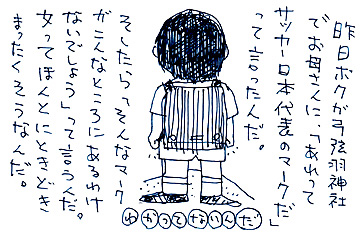 昨日ボクが弓弦羽神社
でお母さんに、「あれって
サッカー日本代表のマークだ」
って言ったんだ。
そしたら、「そんなマーク
がこんなところにあるわけ
ないでしょう」って言うんだ。
女ってほんとにときどき
まったくそうなんだ。
わかってないんだ